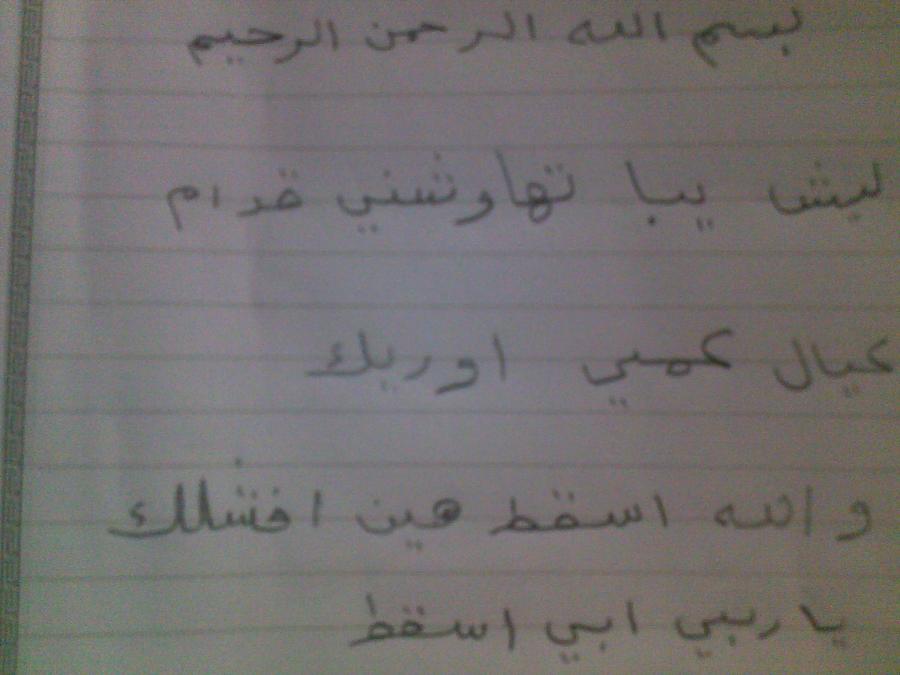 بسم الله الرحمن الرحيم
ليش يبا تهاوشني قدام
عيال عمي اوريك
والله اسقط هين افشلك
يا ربي ابي اسقط